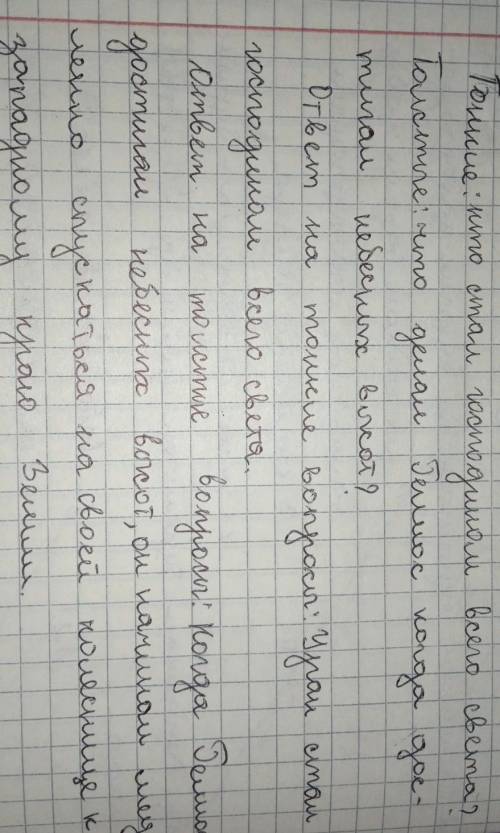 Тонкие: кто стал господином всего света?
Толстые: что делал Гелиос когда дос-
тигал небесных высот?
Ответ на тонкие вопросы: Уран стал
господином всего света.
Ответ на толстые вопросы: Когда Гелио
достигал небесных высот, он начинал мед
ленно спускаться на своей колеснице к
западному краю Земли.